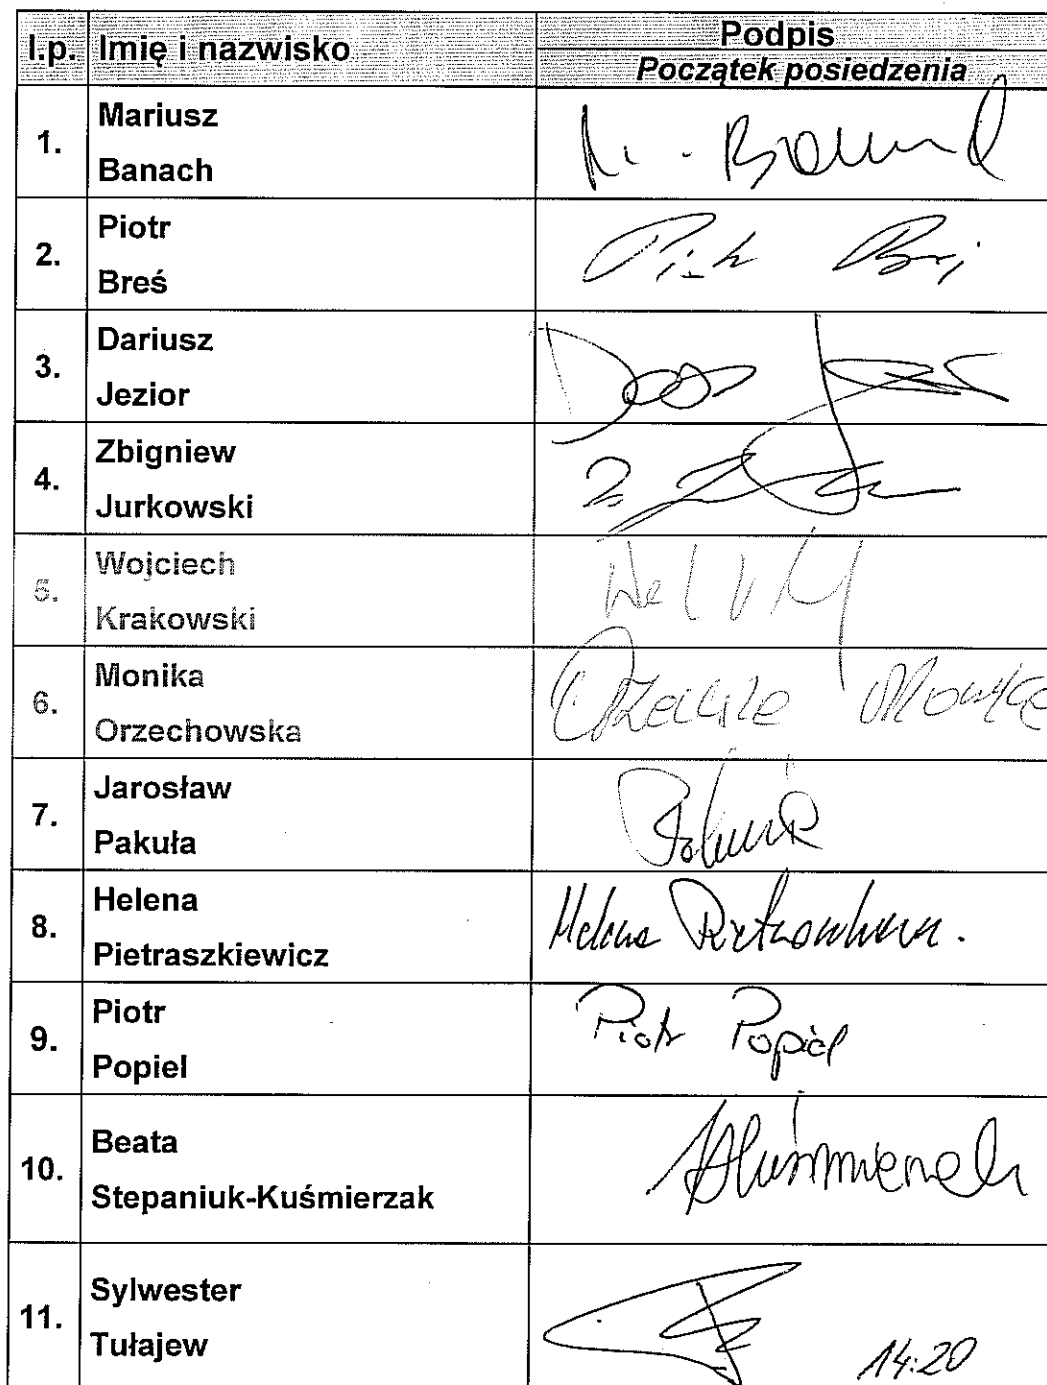 l.p. Imię i nazwisko Podpis
Początek posiedzenia
1. Mariusz
Banach
M. Banach
2. Piotr
Breś
Piotr Breś
3. Dariusz
Jezior
4. Zbigniew
Jurkowski
5. Wojciech
Krakowski
6. Monika
Orzechowska
7. Jarosław
Pakuła
8. Helena
Pietraszkiewicz
Helena
9. Piotr
Popiel
Piotr Popiel
10. Beata
Stepaniuk-Kuśmierzak
11. Sylwester
Tułajew
14:20